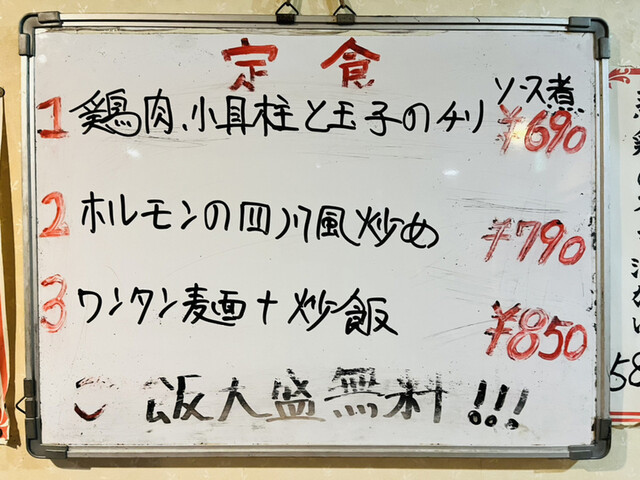 定食
1 鶏肉、小貝柱と玉子のチリソース煮 ¥690
2 ホルモンの四川風炒め ¥790
3 ワンタン麦面+炒飯 ¥850
ご飯大盛無料!!!
58